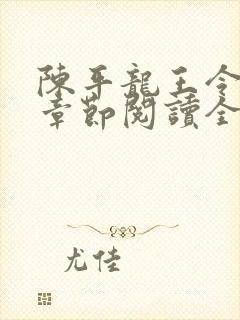 陳平龍王令
章節閱讀全
尤佳